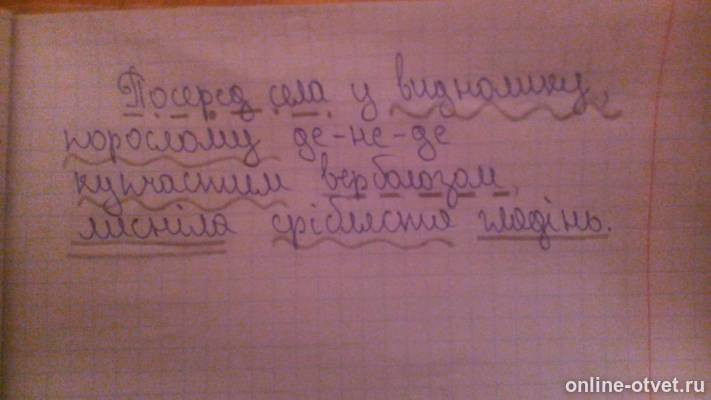 Посеред села у видолинку,
порослому де-не-де
купчастим верболозом,
лисніла срібляста гладінь.
online-otvet.ru